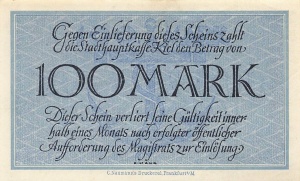 Gegen Einlieferung dieses Scheins zahlt
die Stadthauptkasse Kiel den Betrag von
100 MARK
Dieser Schein verliert seine Gültigkeit inner
halb eines Monats nach erfolgter öffentlicher
Aufforderung des Magistrats zur Einlösung.
C. Naumann's Druckerei, Frankfurt a/M.